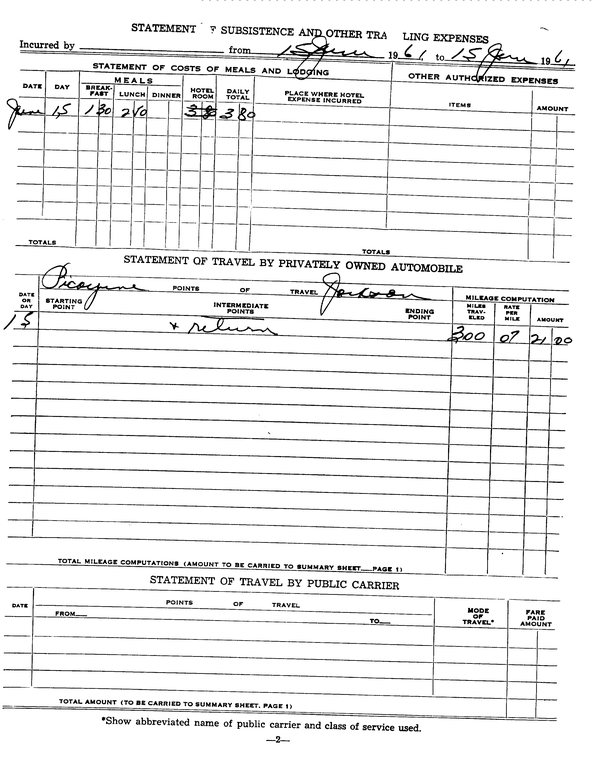 STATEMENT F SUBSISTENCE AND OTHER TRA LING EXPENSES
Incurred by from 15 June 1961, to 15 June 1961
STATEMENT OF COSTS OF MEALS AND LODGING OTHER AUTHORIZED EXPENSES
DATE DAY MEALS BREAK-FAST LUNCH DINNER HOTEL ROOM DAILY TOTAL PLACE WHERE HOTEL EXPENSE INCURRED ITEMS AMOUNT
June 15 1 30 2 50 3 80
TOTALS TOTALS
STATEMENT OF TRAVEL BY PRIVATELY OWNED AUTOMOBILE
Picayune POINTS OF TRAVEL Jackson MILEAGE COMPUTATION
DATE OR DAY STARTING POINT INTERMEDIATE POINTS ENDING POINT MILES TRAV-ELED RATE PER MILE AMOUNT
15 + return 300 07 21 00
TOTAL MILEAGE COMPUTATIONS (AMOUNT TO BE CARRIED TO SUMMARY SHEET PAGE 1)
STATEMENT OF TRAVEL BY PUBLIC CARRIER
DATE POINTS OF TRAVEL MODE OF TRAVEL* FARE PAID AMOUNT
FROM TO
TOTAL AMOUNT (TO BE CARRIED TO SUMMARY SHEET, PAGE 1)
*Show abbreviated name of public carrier and class of service used.
—2—